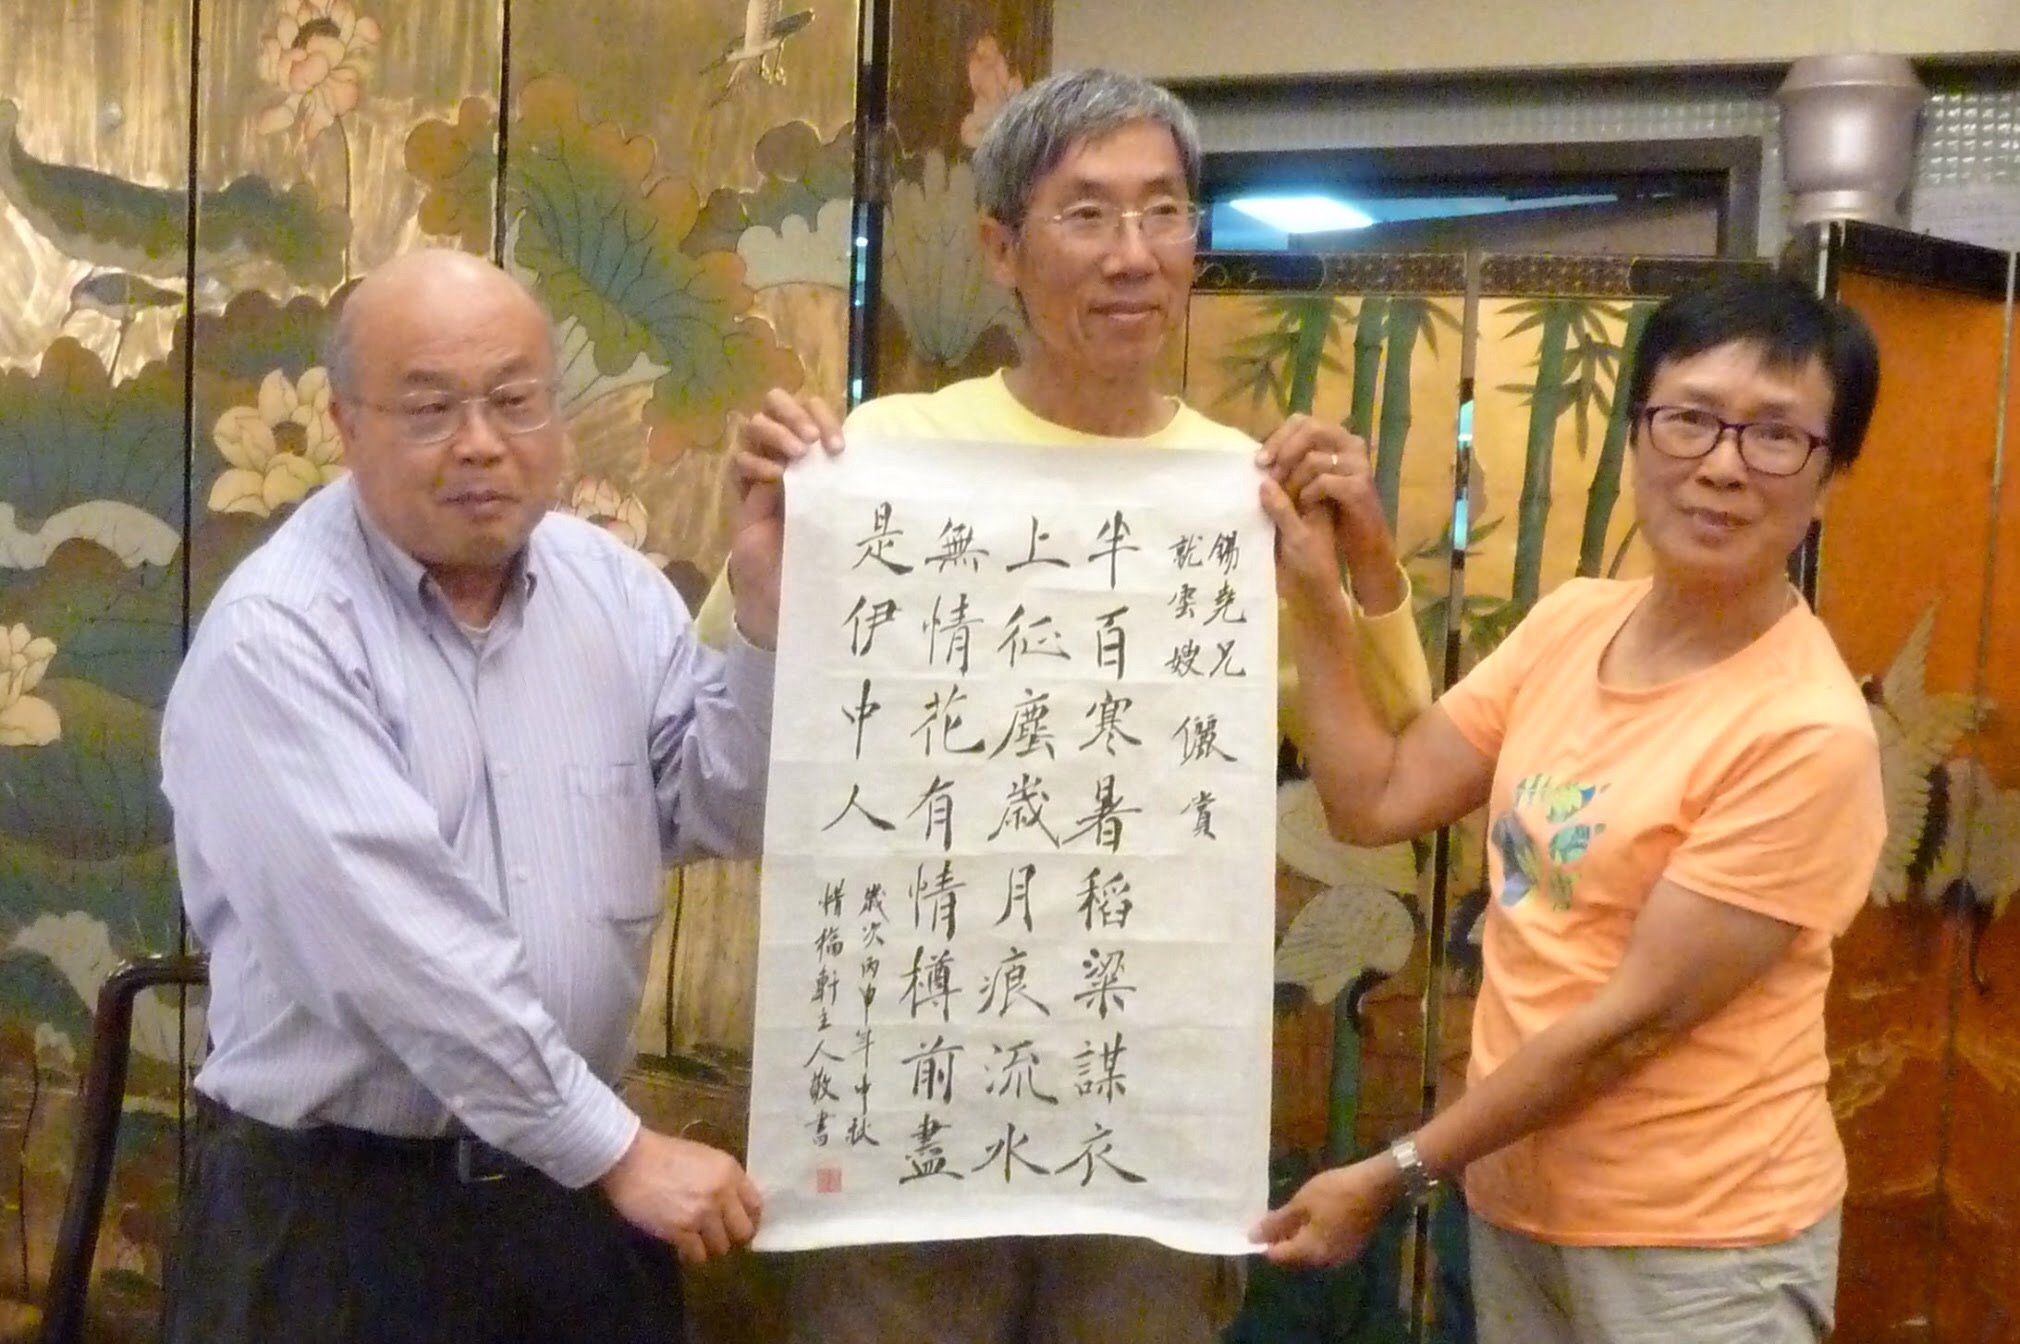 錫堯兄
就雲嫂 儷賞
半百寒暑稻粱謀衣
上征塵歲月痕流水
無情花有情樽前盡
是伊中人
歲次丙申年中秋
惜楡軒主人敬書